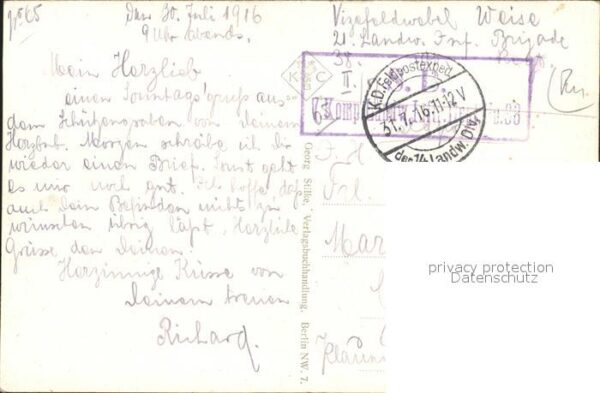 Den 30. Juli 1916
9 Uhr abends.
Mein Herzlieb
einen Sonntagsgruß aus
dem Schützengraben von Deinem
Herzbub. Morgen schreibe ich Dir
wieder einen Brief. Sonst geht
es mir noch gut. Ich hoffe daß
auch Dein Befinden nichts zu
wünschen übrig läßt. Herzliche
Grüsse den Deinen.
Herzinnige Küsse von
Deinem treuen
Richard.
Georg Stilke, Verlagsbuchhandlung, Berlin NW. 7.
Vizefeldwebel Weise
21. Landw. Inf. Brigade
38.
II
K C
K.D. Feldpostexped.
31.7.16.11-12V
der 14. Landw. Div.
F.
Frl.
Mar
privacy protection
Datenschutz